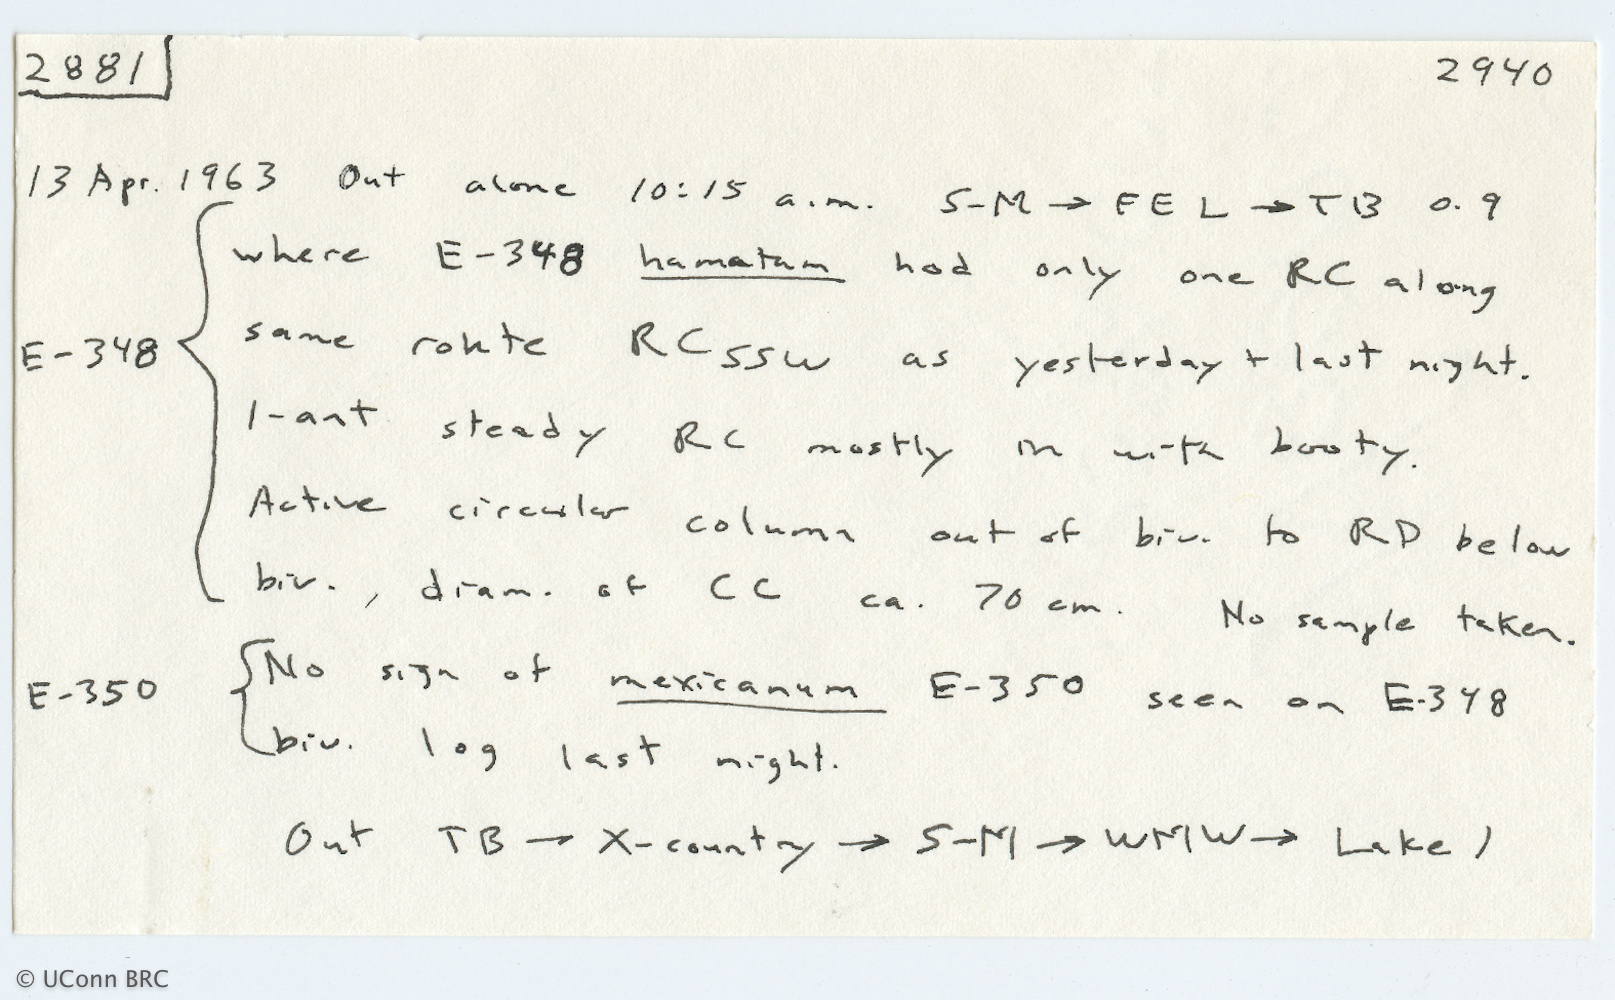 2881 2940
13 Apr. 1963 Out alone 10:15 a.m. S-M → FEL → TB 0.9
where E-348 hamatum had only one RC along
E-348 same route RC SSW as yesterday + last night.
1-ant steady RC mostly in with booty.
Active circular column out of biv. to RD below
biv., diam. of CC ca. 70 cm. No sample taken.
E-350 No sign of mexicanum E-350 seen on E-348
biv. log last night.
Out TB → X-country → S-M → WMW → Lake )
© UConn BRC